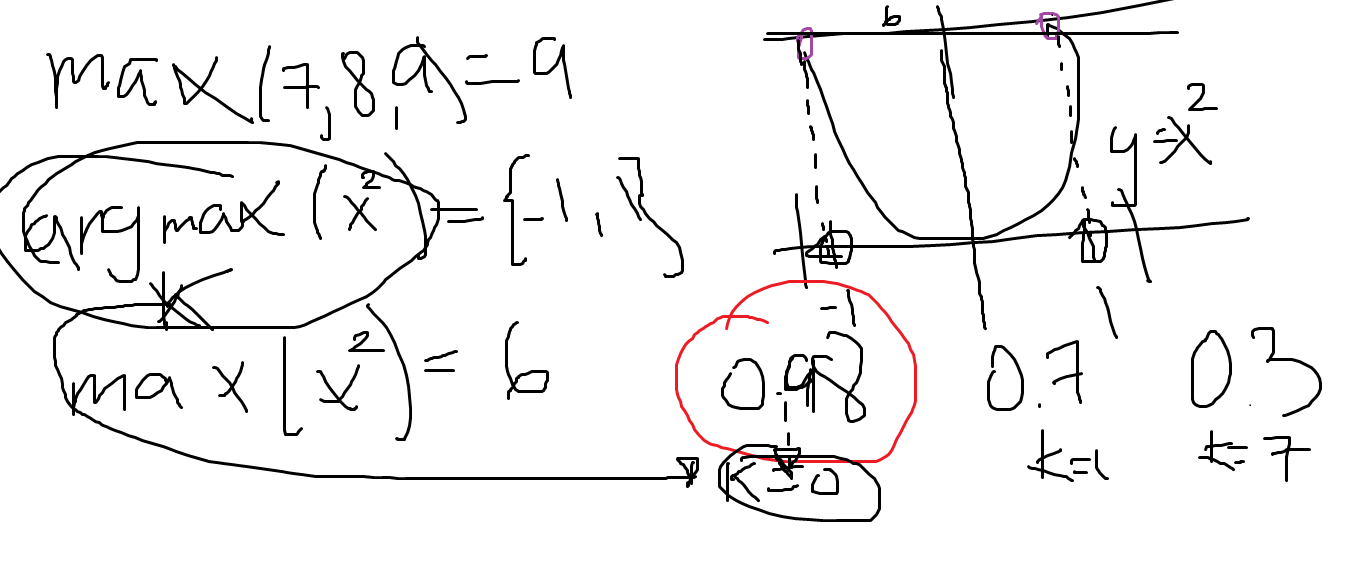 max(7,8,9)=9
argmax(x²)={-1,1}
k
max[x²)=6
6
y=x²
-1
1
0.98
0.7
0.3
k=0
k=1
k=7